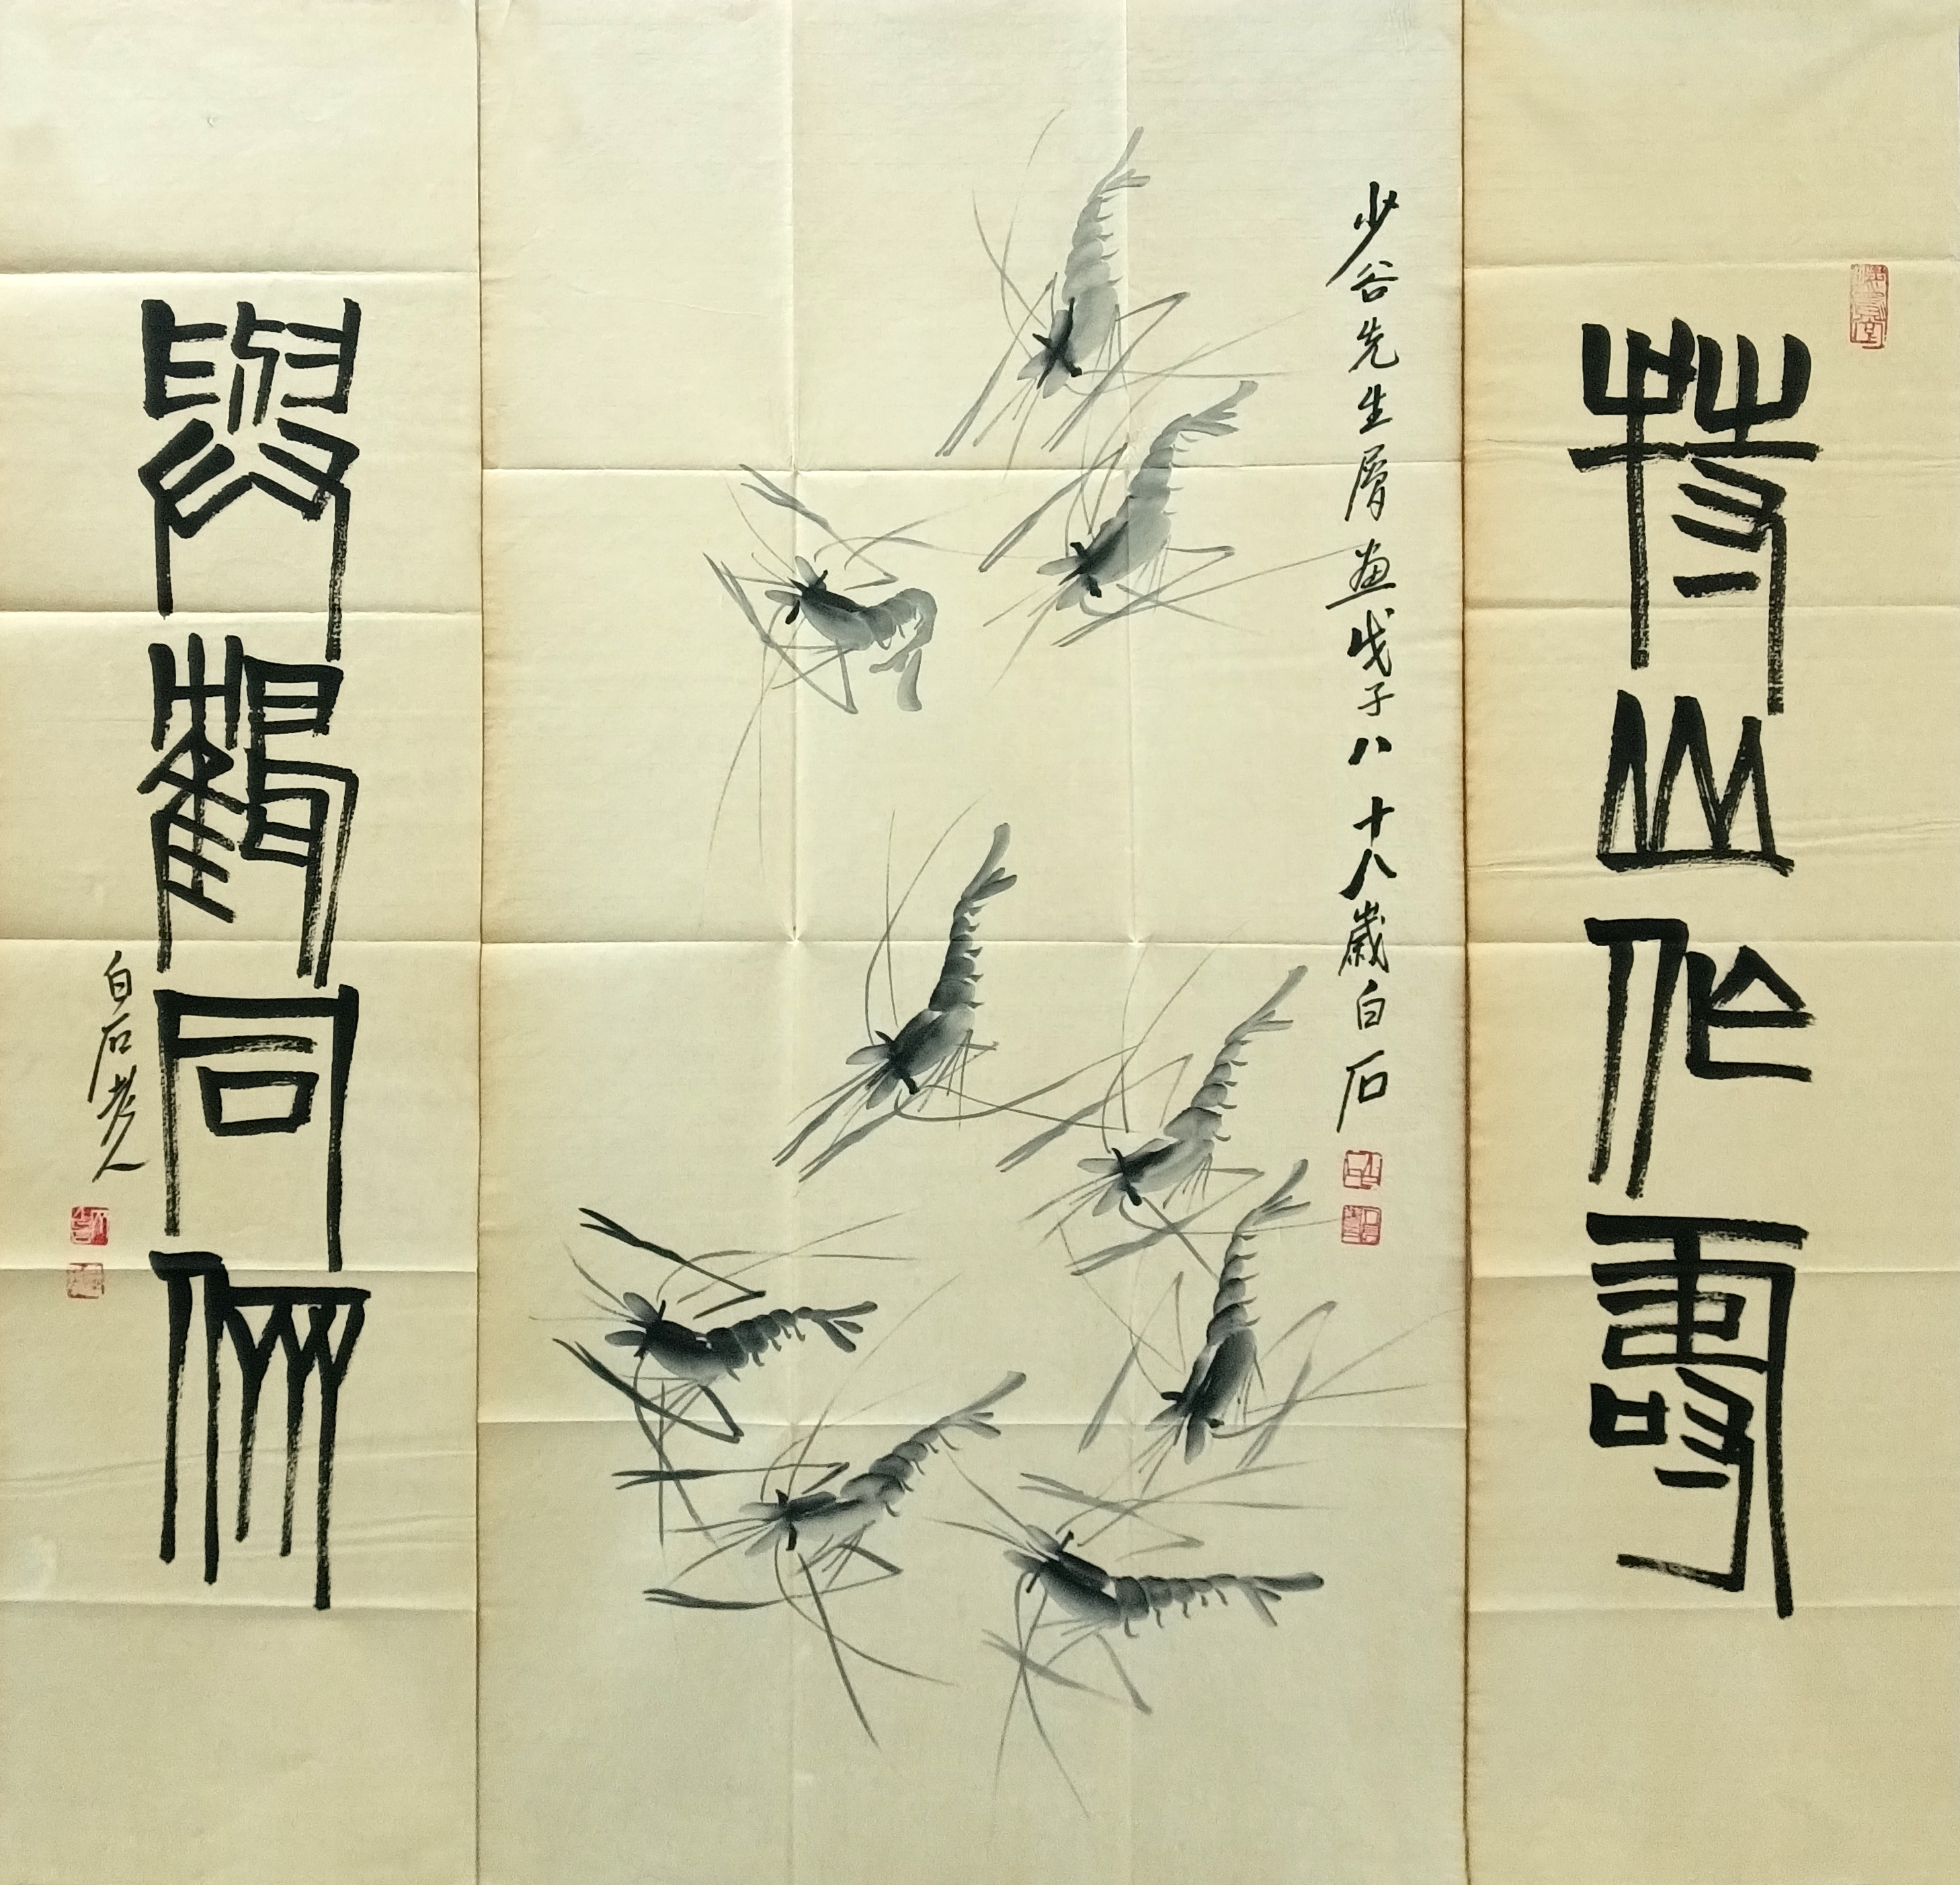 持山作壽
少谷先生屬畫戊子八十八歲白石
與鶴同儕
白石老人